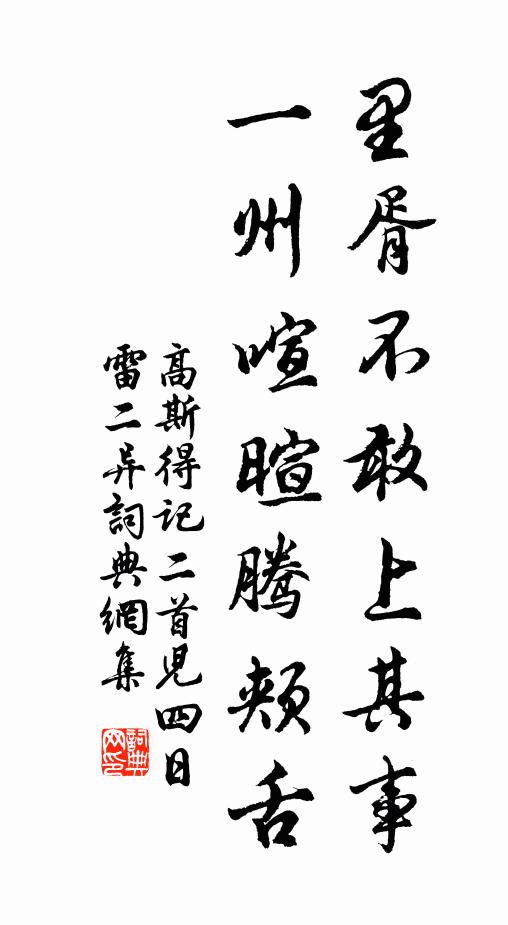 里胥不敢上其事
一州喧暄腾颊舌
高斯得记二首儿四日
雷二异词典網集
詞典网印